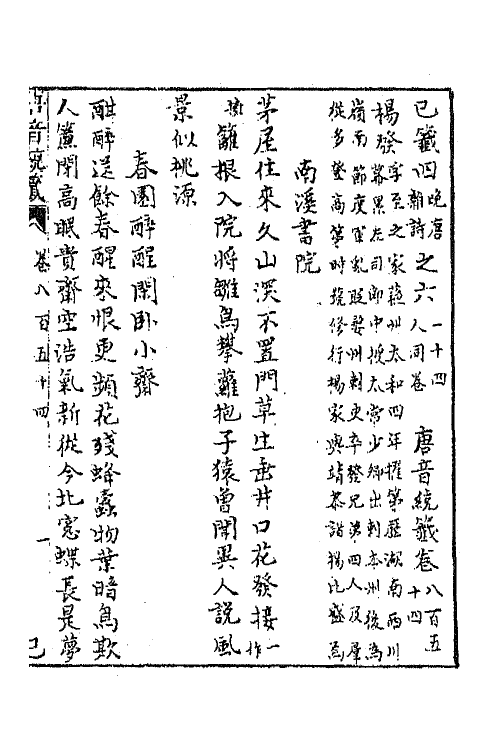 已籤四晚唐朝詩之六一十四人同卷　唐音統籤卷八百五十四
楊發字至之家蘇州太和四年擢第歷湖南西川
幕累左司郎中授太常少卿出刺本州後為
嶺南節度軍亂貶婺州刺史卒發兄弟四人及羣
從多登高第時號修行楊家與靖恭諸楊比盛
南溪書院
茅屋住來久山深不置門草生垂井口花發接一作
籬根入院將雛鳥攀蘿抱子猿曾聞異人說風
景似桃源
春園醉醒閑臥小齋
酣醉送餘春醒來恨更頻花殘蜂蠹物葉暗鳥欺
人簾閉高眠貴齋空浩氣新從今北窗蝶長是夢
唐音統籤
卷八百五十四
一
已